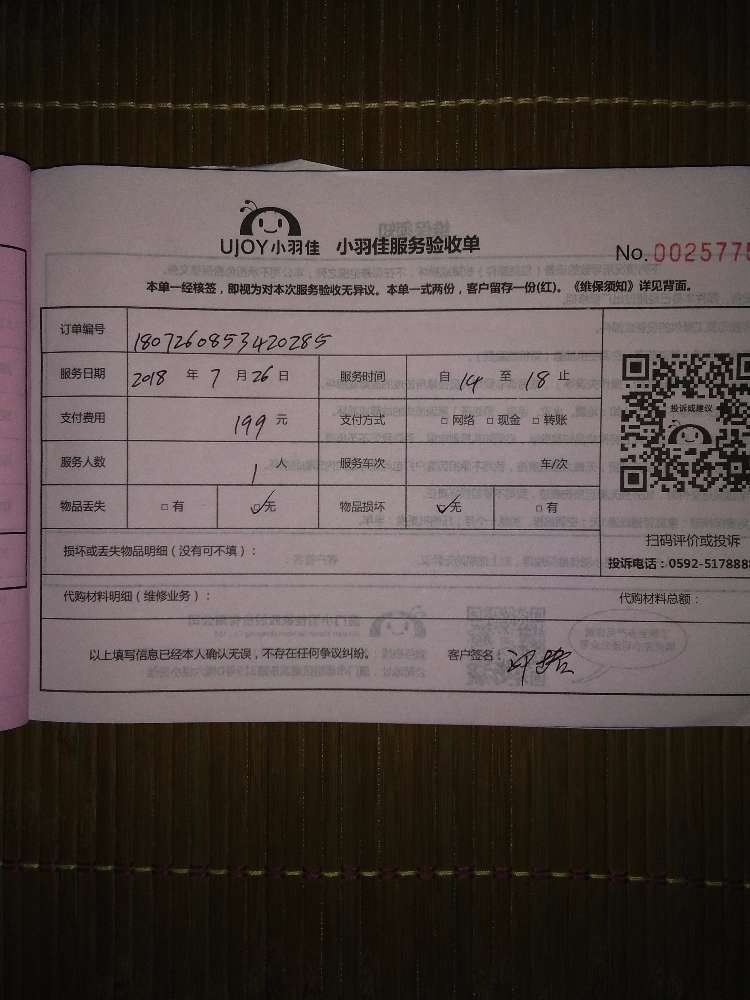 UJOY小羽佳 小羽佳服务验收单
No. 0025775
本单一经核签，即视为对本次服务验收无异议。本单一式两份，客户留存一份(红)。《维保须知》详见背面。
订单编号 1807260853420285
服务日期 2018 年 7 月 26 日 服务时间 自 14 至 18 止
支付费用 199 元 支付方式 □ 网络 □ 现金 □ 转账
投诉或建议
服务人数 1 人 服务车次 车/次
物品丢失 □ 有 ☑无 物品损坏 ☑无 □ 有
扫码评价或投诉
损坏或丢失物品明细（没有可不填）：
投诉电话：0592-517888
代购材料明细（维修业务）： 代购材料总额：
以上填写信息已经本人确认无误，不存在任何争议纠纷。 客户签名：